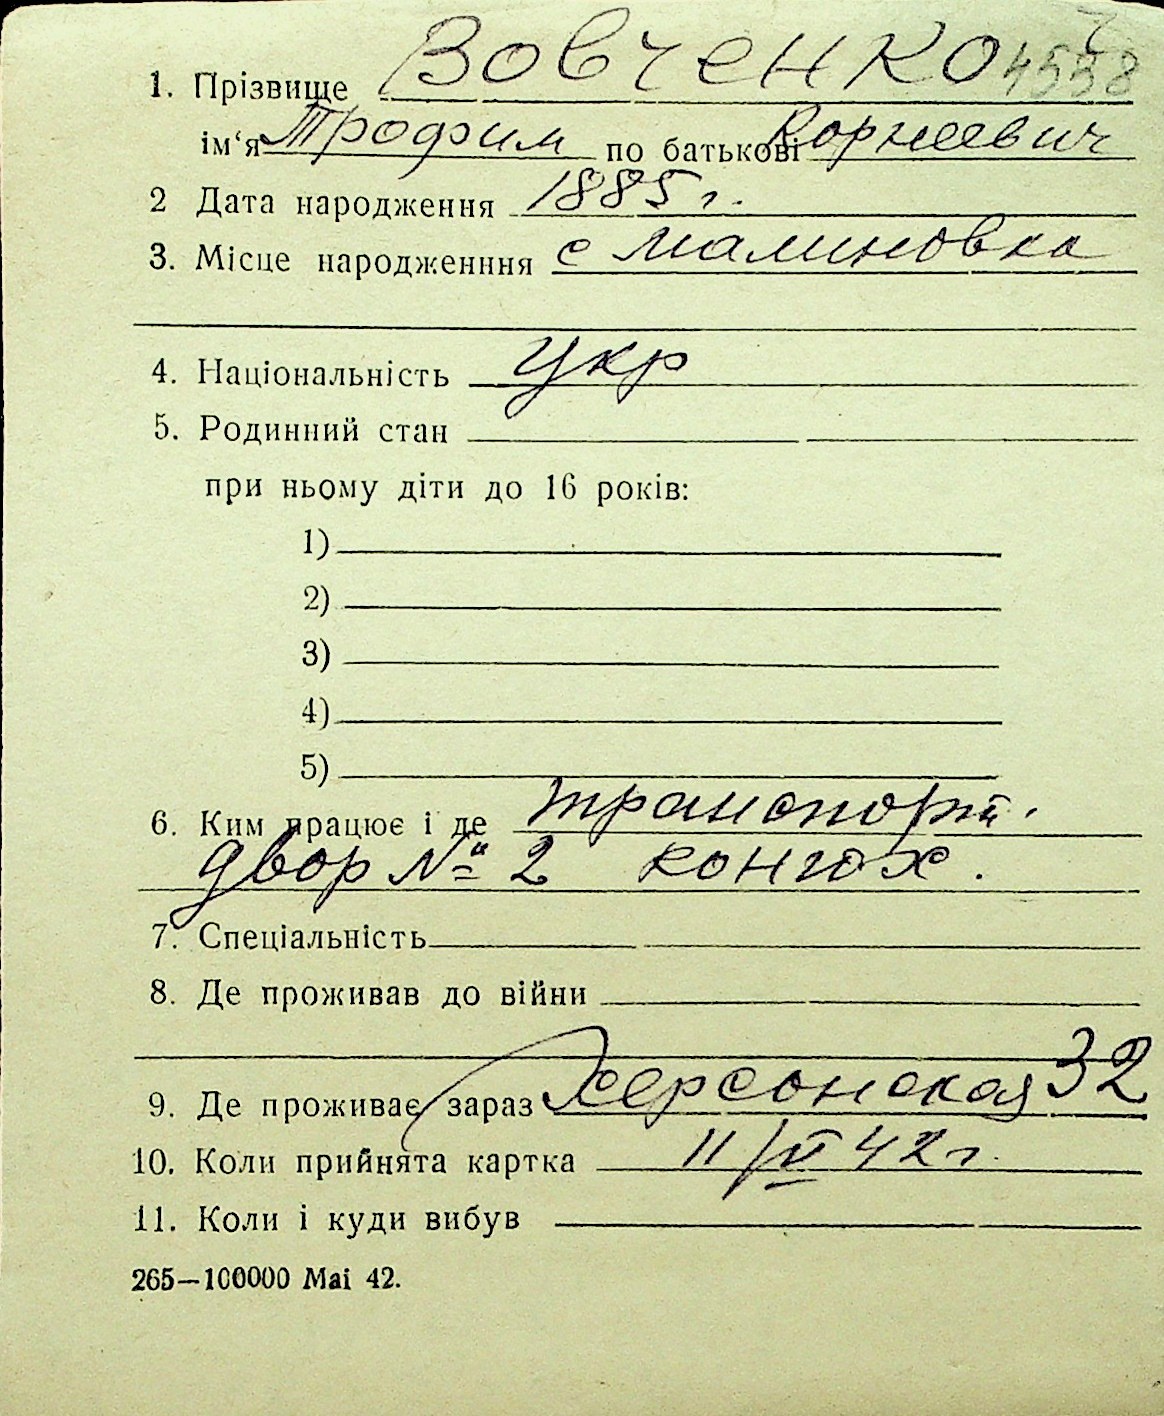 1. Прізвище Вовченко 4558
ім‘я Трофим по батькові Корнеевич
2 Дата народження 1885 г.
3. Місце народженння с Малиновка
4. Національність Укр
5. Родинний стан
при ньому діти до 16 років:
1)
2)
3)
4)
5)
6. Ким працює і де транспорт.
двор № 2 конюх.
7. Спеціальність
8. Де проживав до війни
9. Де проживає зараз Херсонская 32
10. Коли прийнята картка 11/VI 42 г.
11. Коли і куди вибув
265—100000 Mai 42.